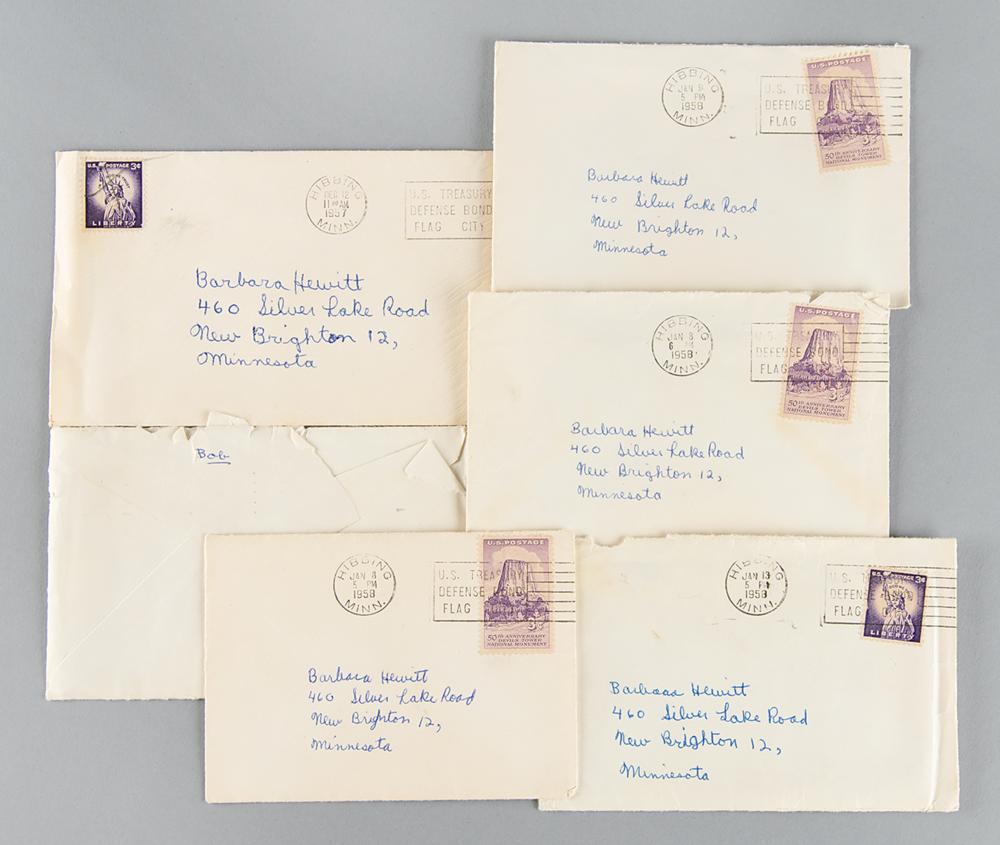 U.S. POSTAGE 3¢
LIBERTY
HIBBING
DEC 12
11 AM
1957
MINN.
U.S. TREASURY
DEFENSE BOND
FLAG CITY
Barbara Hewitt
460 Silver Lake Road
New Brighton 12,
Minnesota
HIBBING
JAN 8
5 PM
1958
MINN.
U.S. TREAS
DEFENSE BOND
FLAG
U.S. POSTAGE
3¢
50TH ANNIVERSARY
DEVILS TOWER
NATIONAL MONUMENT
Barbara Hewitt
460 Silver Lake Road
New Brighton 12,
Minnesota
HIBBING
JAN 8
6 PM
1958
MINN.
U.S. TREAS
DEFENSE BOND
FLAG
U.S. POSTAGE
3¢
50TH ANNIVERSARY
DEVILS TOWER
NATIONAL MONUMENT
Barbara Hewitt
460 Silver Lake Road
New Brighton 12,
Minnesota
Bob
HIBBING
JAN 8
5 PM
1958
MINN.
U.S. TREASURY
DEFENSE BOND
FLAG
U.S. POSTAGE
3¢
50TH ANNIVERSARY
DEVILS TOWER
NATIONAL MONUMENT
Barbara Hewitt
460 Silver Lake Road
New Brighton 12,
Minnesota
HIBBING
JAN 13
5 PM
1958
MINN.
U.S.
DEFENSE BOND
FLAG
U.S. POSTAGE 3¢
LIBERTY
Barbara Hewitt
460 Silver Lake Road
New Brighton 12,
Minnesota